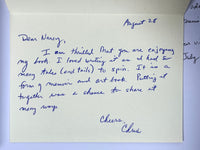 August 28
Dear Nancy,
I am thrilled that you are enjoying
my book. I loved writing it as I had so
many tales (and tails) to spin. It is a
form of memoir and art book. Putting it
together was a chance to share it
many ways.
Cheers,